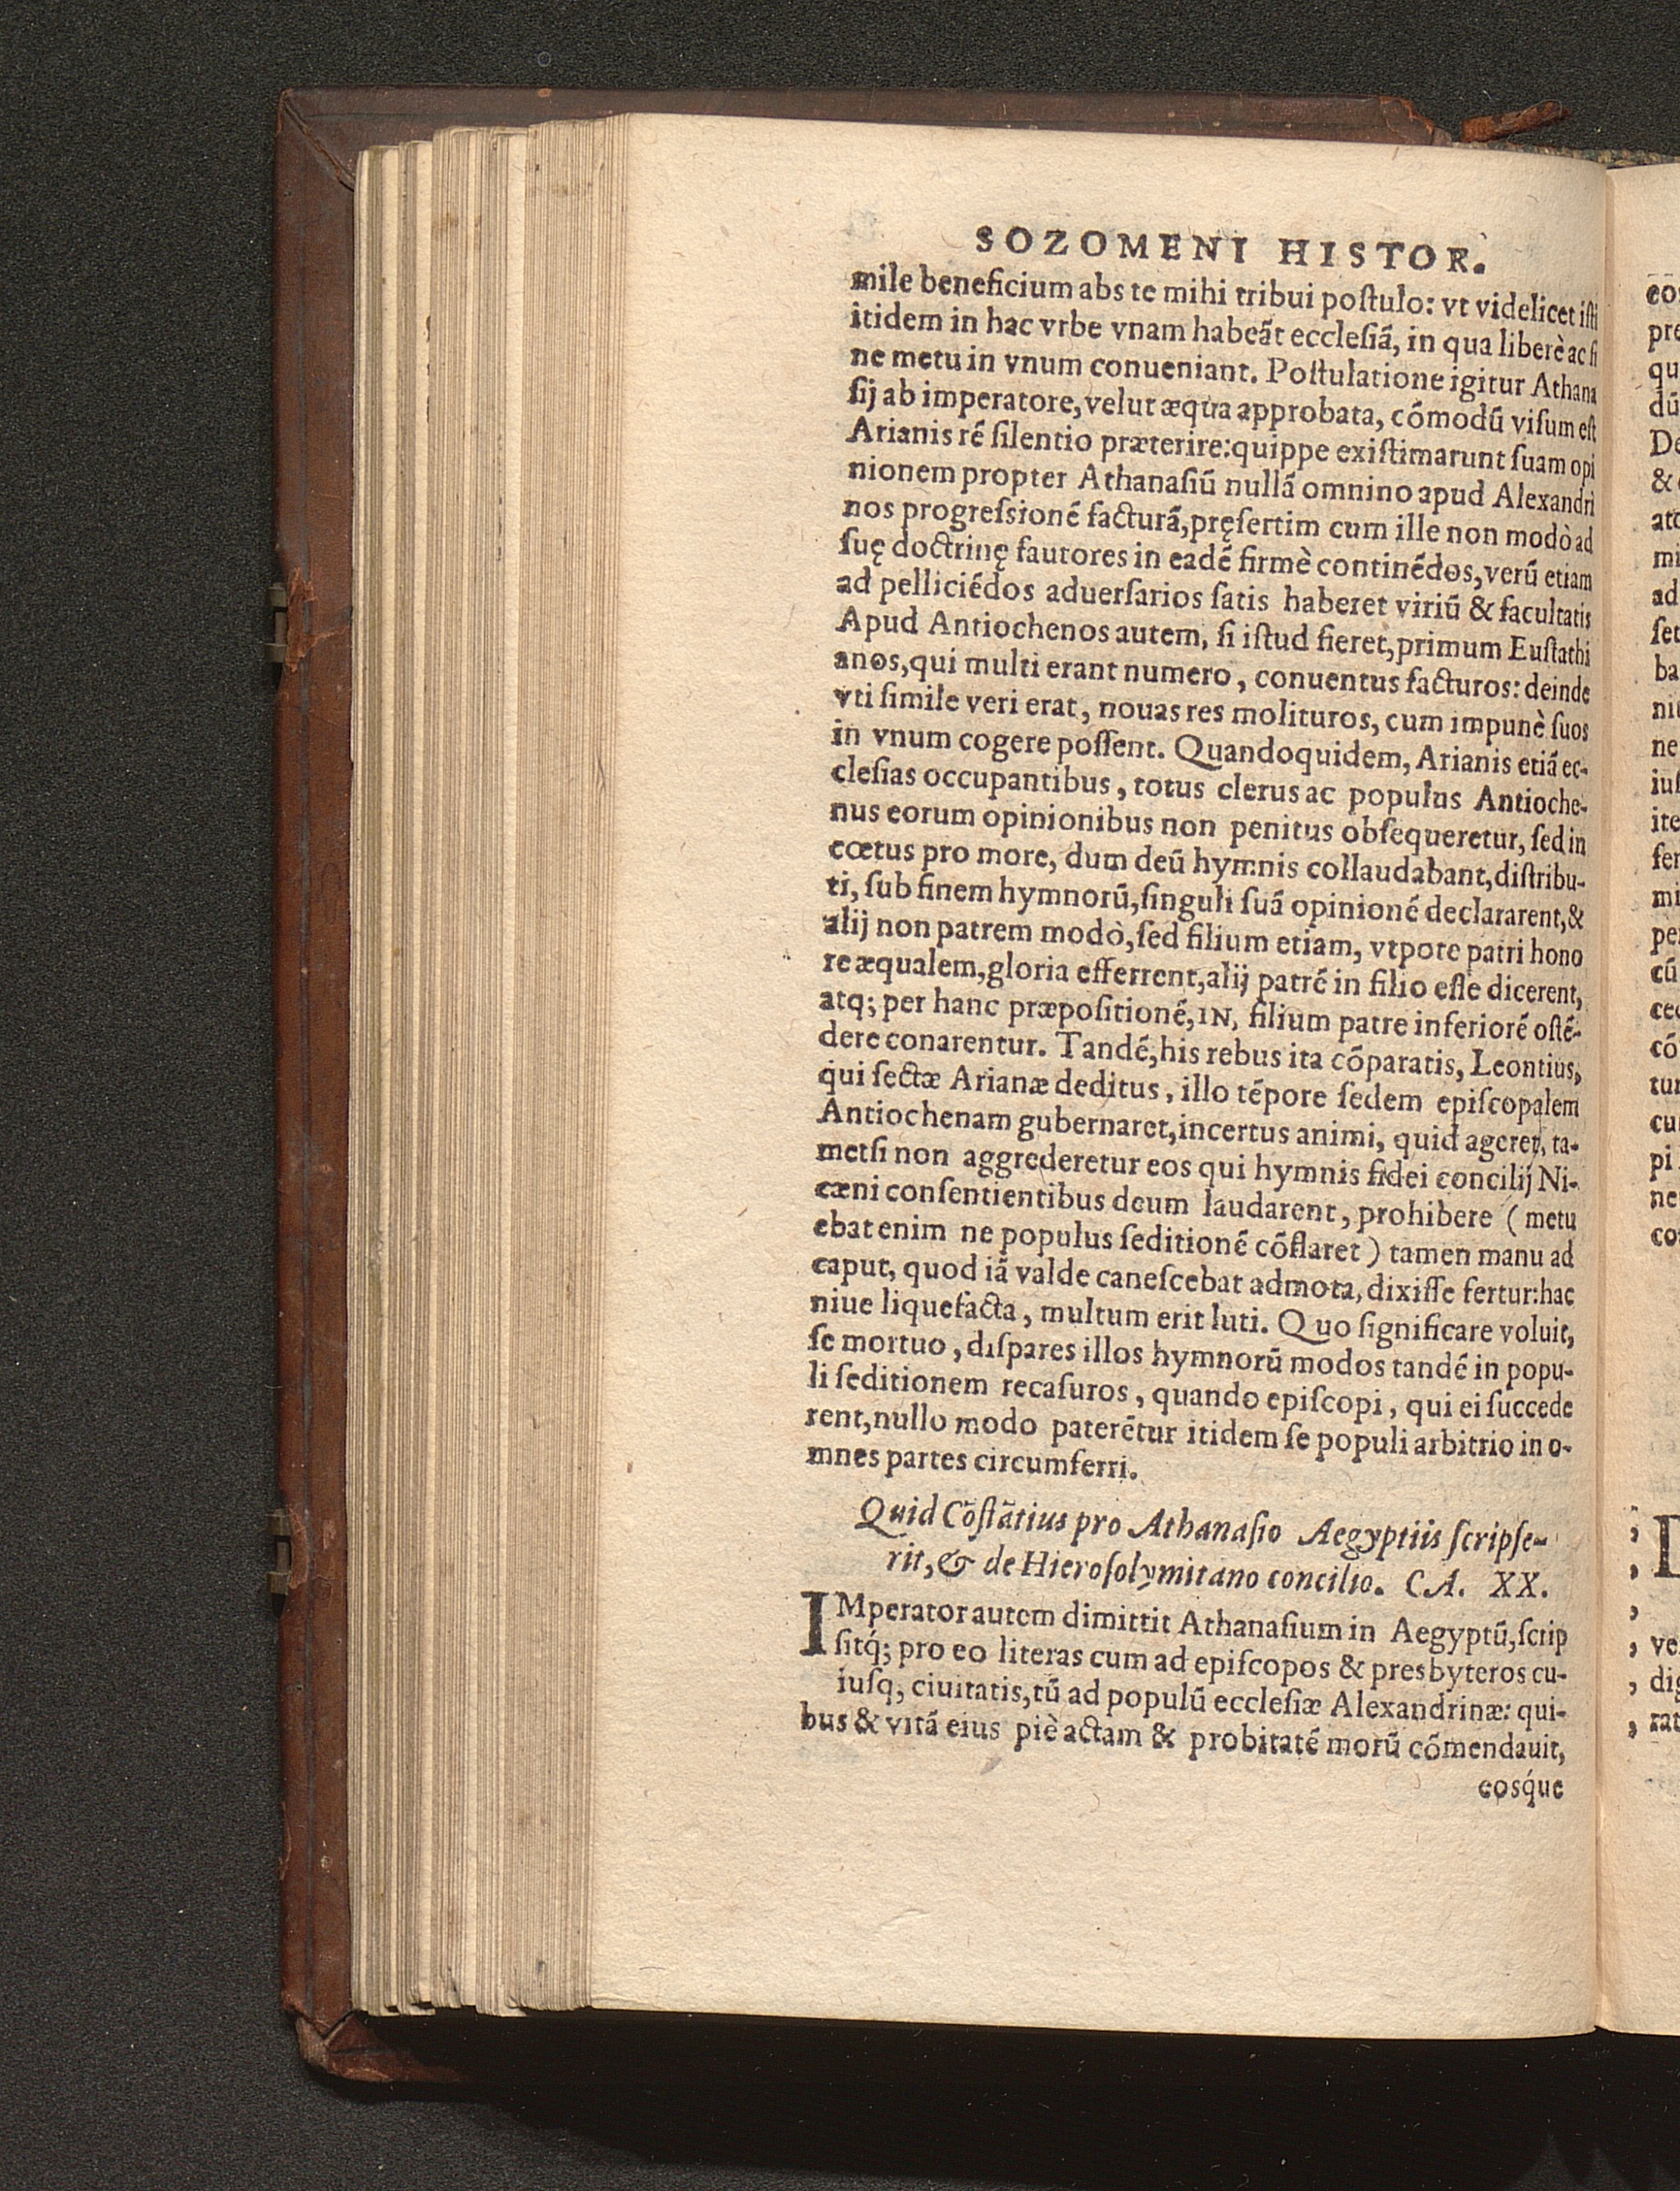 SOZOMENI HISTOR.
mile beneficium abs te mihi tribui poſtulo: vt videlicet iſti
itidem in hac vrbe vnam habeãt eccleſiã, in qua liberè ac ſi
ne metu in vnum conueniant. Poſtulatione igitur Athana
ſij ab imperatore, velut æqua approbata, cómodũ viſum eſt
Arianis ré ſilentio præterire: quippe exiſtimarunt ſuam opi
nionem propter Athanaſiũ nullã omnino apud Alexandri
nos progreſsioné facturã, pręſertim cum ille non modò ad
ſuę doctrinę fautores in eadé firmè continédos, verũ etiam
ad pelliciédos aduerſarios ſatis haberet viriũ & facultatis
Apud Antiochenos autem, ſi iſtud fieret, primum Euſtathi
anos, qui multi erant numero, conuentus facturos: deinde
vti ſimile veri erat, nouas res molituros, cum impunè ſuos
in vnum cogere poſſent. Quandoquidem, Arianis etiã ec-
cleſias occupantibus, totus clerus ac populus Antioche-
nus eorum opinionibus non penitus obſequeretur, ſed in
cœtus pro more, dum deũ hymnis collaudabant, diſtribu-
ti, ſub finem hymnorũ, ſinguli ſuã opinioné declararent, &
alij non patrem modò, ſed filium etiam, vtpote patri hono
re æqualem, gloria efferrent, alij patré in filio eſſe dicerent,
atq; per hanc præpoſitioné, IN, filium patre inferioré oſté-
dere conarentur. Tandé, his rebus ita cõparatis, Leontius,
qui ſectæ Arianæ deditus, illo tépore ſedem epiſcopalem
Antiochenam gubernaret, incertus animi, quid ageret, ta-
metſi non aggrederetur eos qui hymnis fidei concilij Ni-
cæni conſentientibus deum laudarent, prohibere (metu
ebat enim ne populus ſeditioné cõflaret) tamen manu ad
caput, quod iã valde caneſcebat admota, dixiſſe fertur: hac
niue liquefacta, multum erit luti. Quo ſignificare voluit,
ſe mortuo, diſpares illos hymnorũ modos tandé in popu-
li ſeditionem recaſuros, quando epiſcopi, qui ei ſuccede
rent, nullo modo paterẽtur itidem ſe populi arbitrio in o-
mnes partes circumferri.
Quid Cõſtãtius pro Athanaſio Aegyptiis ſcripſe-
rit, & de Hieroſolymitano concilio. CA. XX.
IMperator autem dimittit Athanaſium in Aegyptũ, ſcrip
ſitq́; pro eo literas cum ad epiſcopos & presbyteros cu-
iuſq; ciuitatis, tũ ad populũ eccleſiæ Alexandrinæ: qui-
bus & vitã eius piè actam & probitaté morũ cõmendauit,
eosq́ue